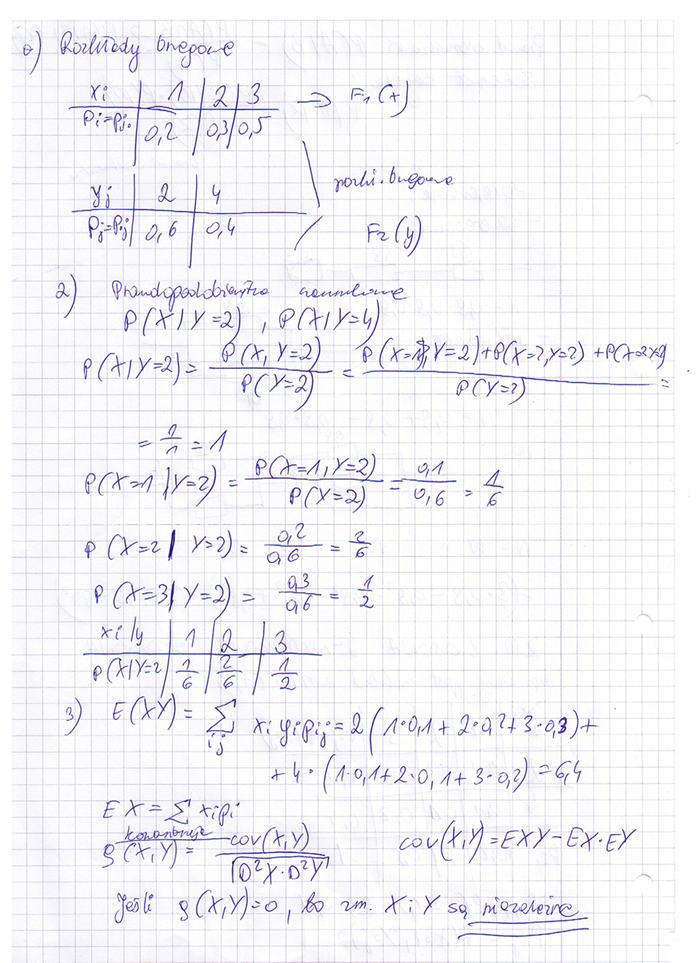 a) Rozkłady brzegowe
xi | 1 | 2 | 3 → F₁(x)
pi=pi. | 0,2 | 0,3 | 0,5
yj | 2 | 4 rozkł. brzegowe
pj=p.j | 0,6 | 0,4 F₂(y)
2) Prawdopodobieństwa warunkowe
P(X/Y=2), P(X/Y=4)
P(X/Y=2) = P(X, Y=2) / P(Y=2) = P(X=1, Y=2) + P(X=2, Y=2) + P(X=3, Y=2) / P(Y=2) =
= 1/1 = 1
P(X=1 | Y=2) = P(X=1, Y=2) / P(Y=2) = 0,1 / 0,6 = 1/6
P(X=2 | Y=2) = 0,2 / 0,6 = 2/6
P(X=3 | Y=2) = 0,3 / 0,6 = 1/2
xi/y | 1 | 2 | 3
P(X/Y=2 | 1/6 | 2/6 | 1/2
3) E(XY) = ∑ij xi yj pij = 2(1·0,1 + 2·0,2 + 3·0,3) +
+ 4·(1·0,1 + 2·0,1 + 3·0,2) = 6,4
EX = ∑ xipi
ρ(X,Y) = cov(X,Y) / √D²X·D²Y cov(X,Y) = EXY − EX·EY
Jeśli ρ(X,Y)=0, to zm. X i Y są niezależne